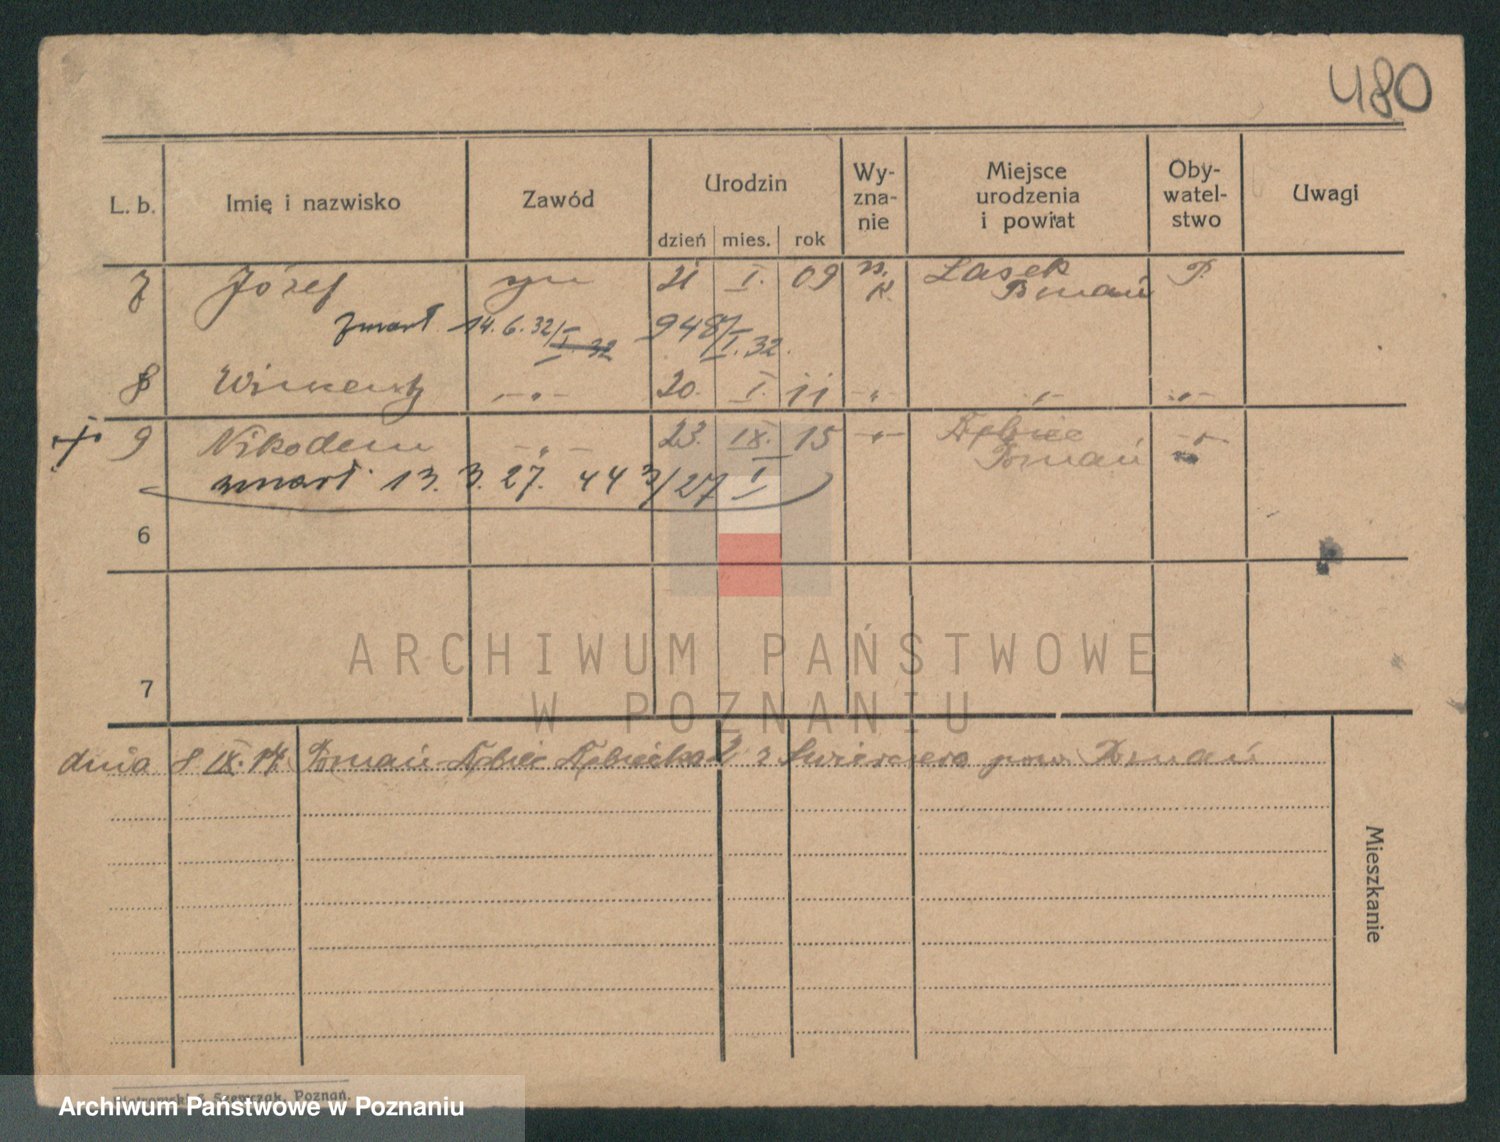 480
L. b. Imię i nazwisko Zawód Urodzin dzień mies. rok Wy-zna-nie Miejsce urodzenia i powiat Oby-watel-stwo Uwagi
7 Józef syn 21 I. 09 rz. K. Lasek Poznań P
zmarł 14.6.32/I 948/I.32.
8 Wincenty -"- 20. I. 11 -"- -"- -"-
+ 9 Nikodem -"- 23. IX. 15 -"- Dębiec Poznań -"-
zmarł 13. 3. 27. 443/27 I
6
7
dnia 8 IX. 14 Poznań-Dębiec Dębiecka 2 z pow. Poznań
Mieszkanie
Szewczak, Poznań.
ARCHIWUM PAŃSTWOWE
W POZNANIU
Archiwum Państwowe w Poznaniu